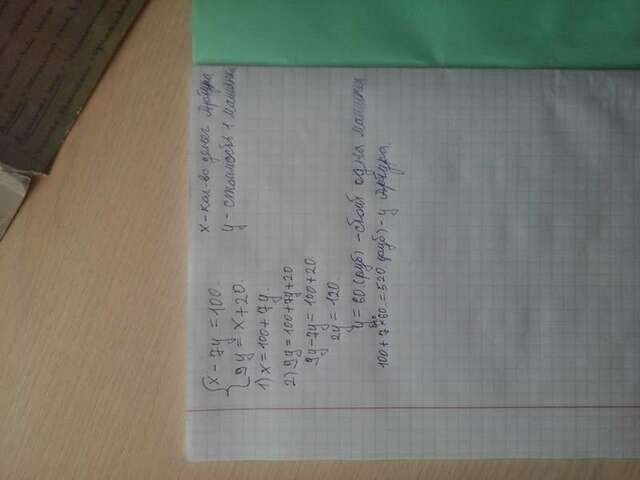 x - кол-во денег Артура
y - стоимость 1 машинки
x - 7y = 100
9y = x + 20.
1) x = 100 + 7y.
2) 9y = 100 + 7y + 20
9y - 7y = 100 + 20
2y = 120
y = 60 (руб) - стоит одна машинка
100 + 7*60 = 520 (руб) - у Артура.